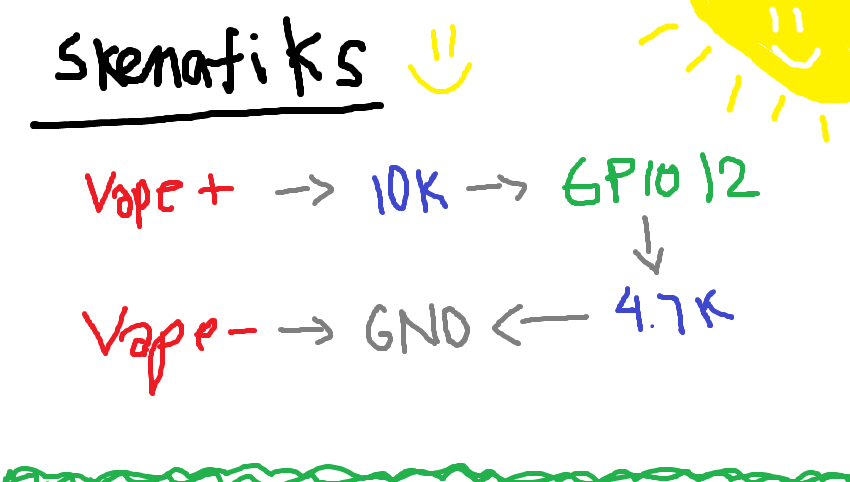 skenatiks
Vape + → 10K → GPIO 12
↓
Vape - → GND ← 4.7K